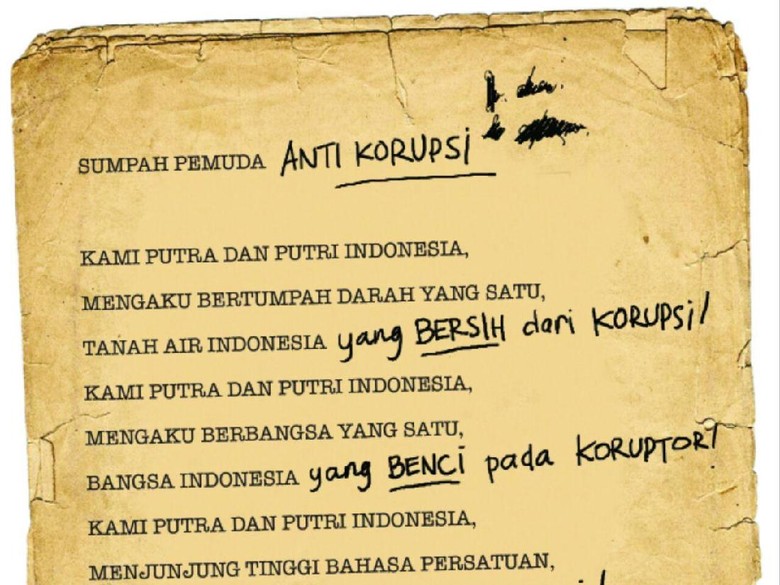 SUMPAH PEMUDA ANTI KORUPSi
KAMI PUTRA DAN PUTRI INDONESIA,
MENGAKU BERTUMPAH DARAH YANG SATU,
TANAH AIR INDONESIA yang BERSIH dari KORUPSi!
KAMI PUTRA DAN PUTRI INDONESIA,
MENGAKU BERBANGSA YANG SATU,
BANGSA INDONESIA yang BENCi pada KORUPTOR!
KAMI PUTRA DAN PUTRI INDONESIA,
MENJUNJUNG TINGGI BAHASA PERSATUAN,